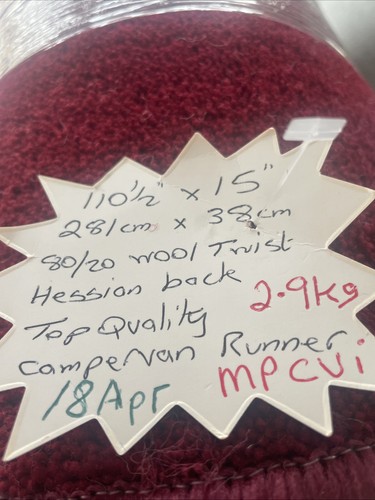 110½" x 15"
281cm x 38cm
80/20 wool Twist
Hession back
2.9kg
Top Quality
CamperVan Runner
18 Apr MPCVi